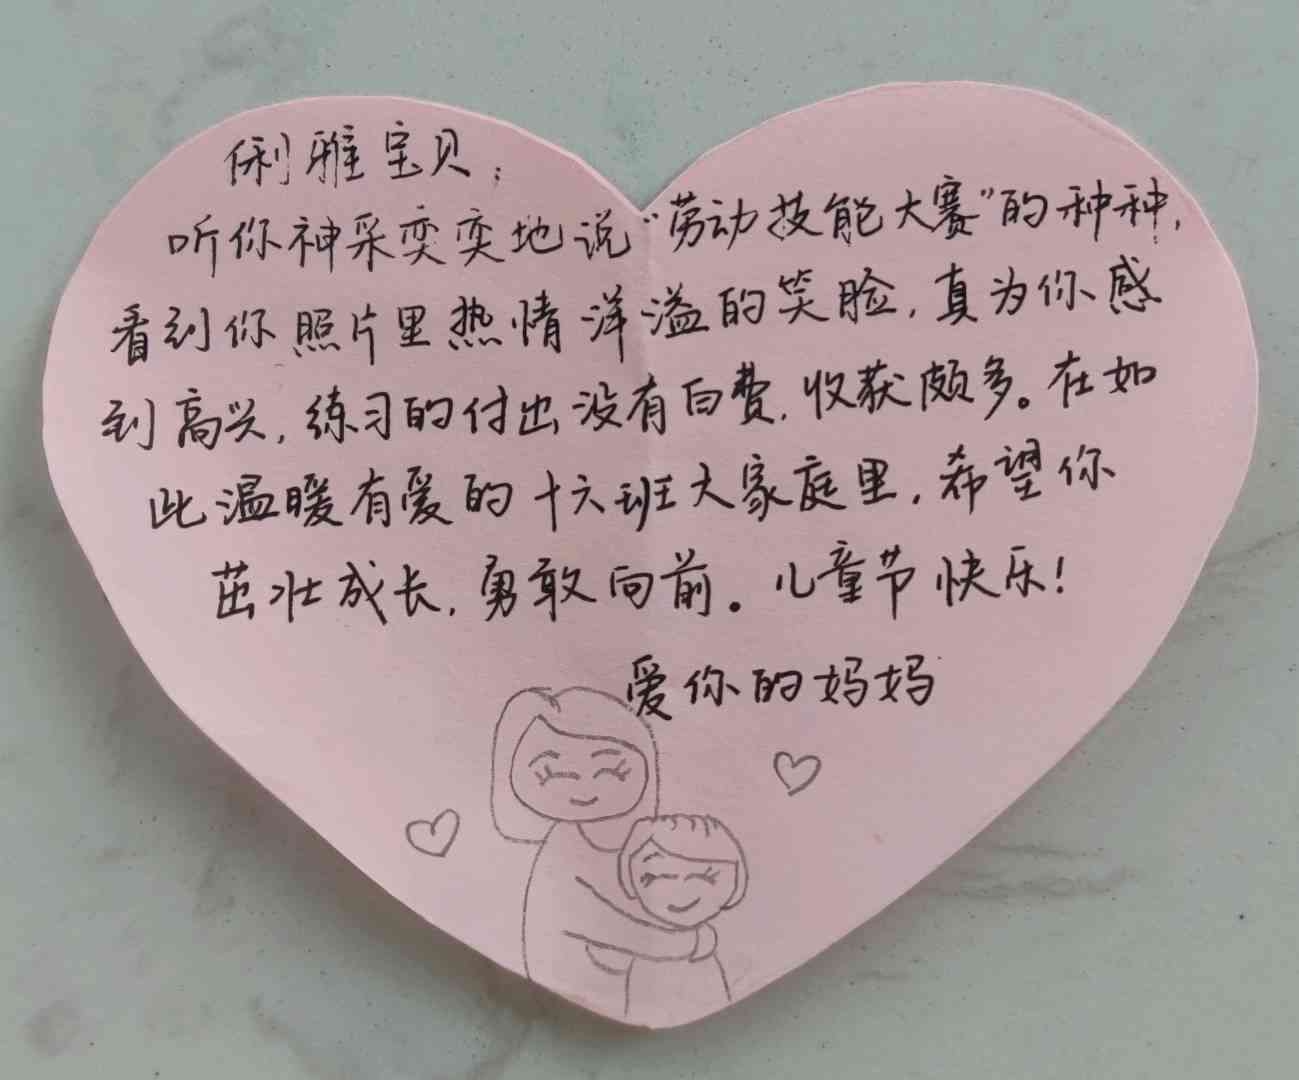 俐雅宝贝：
听你神采奕奕地说“劳动技能大赛”的种种，
看到你照片里热情洋溢的笑脸，真为你感
到高兴，练习的付出没有白费，收获颇多。在如
此温暖有爱的十六班大家庭里，希望你
茁壮成长，勇敢向前。儿童节快乐！
爱你的妈妈